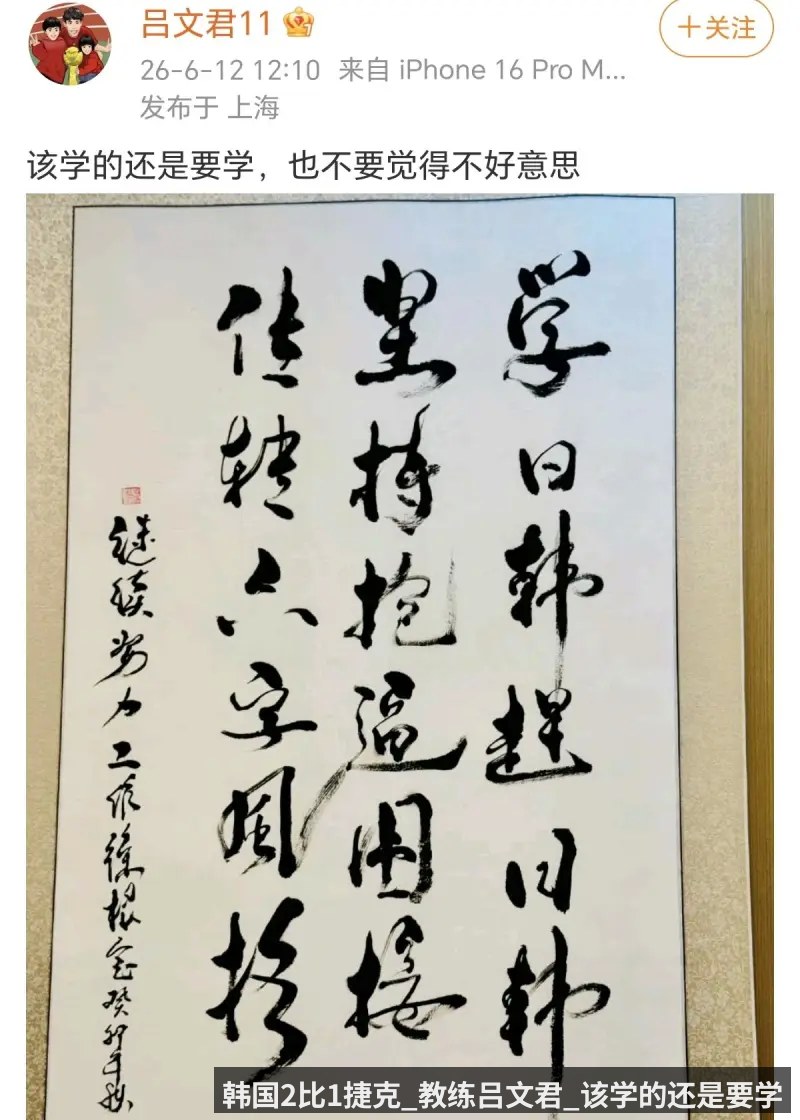 吕文君11
+关注
26-6-12 12:10 来自 iPhone 16 Pro M...
发布于 上海
该学的还是要学，也不要觉得不好意思
学日韩赶日韩
坚持抢逼围接
传转六字风格
继续努力工作徐根宝癸卯年秋
韩国2比1捷克_教练吕文君_该学的还是要学